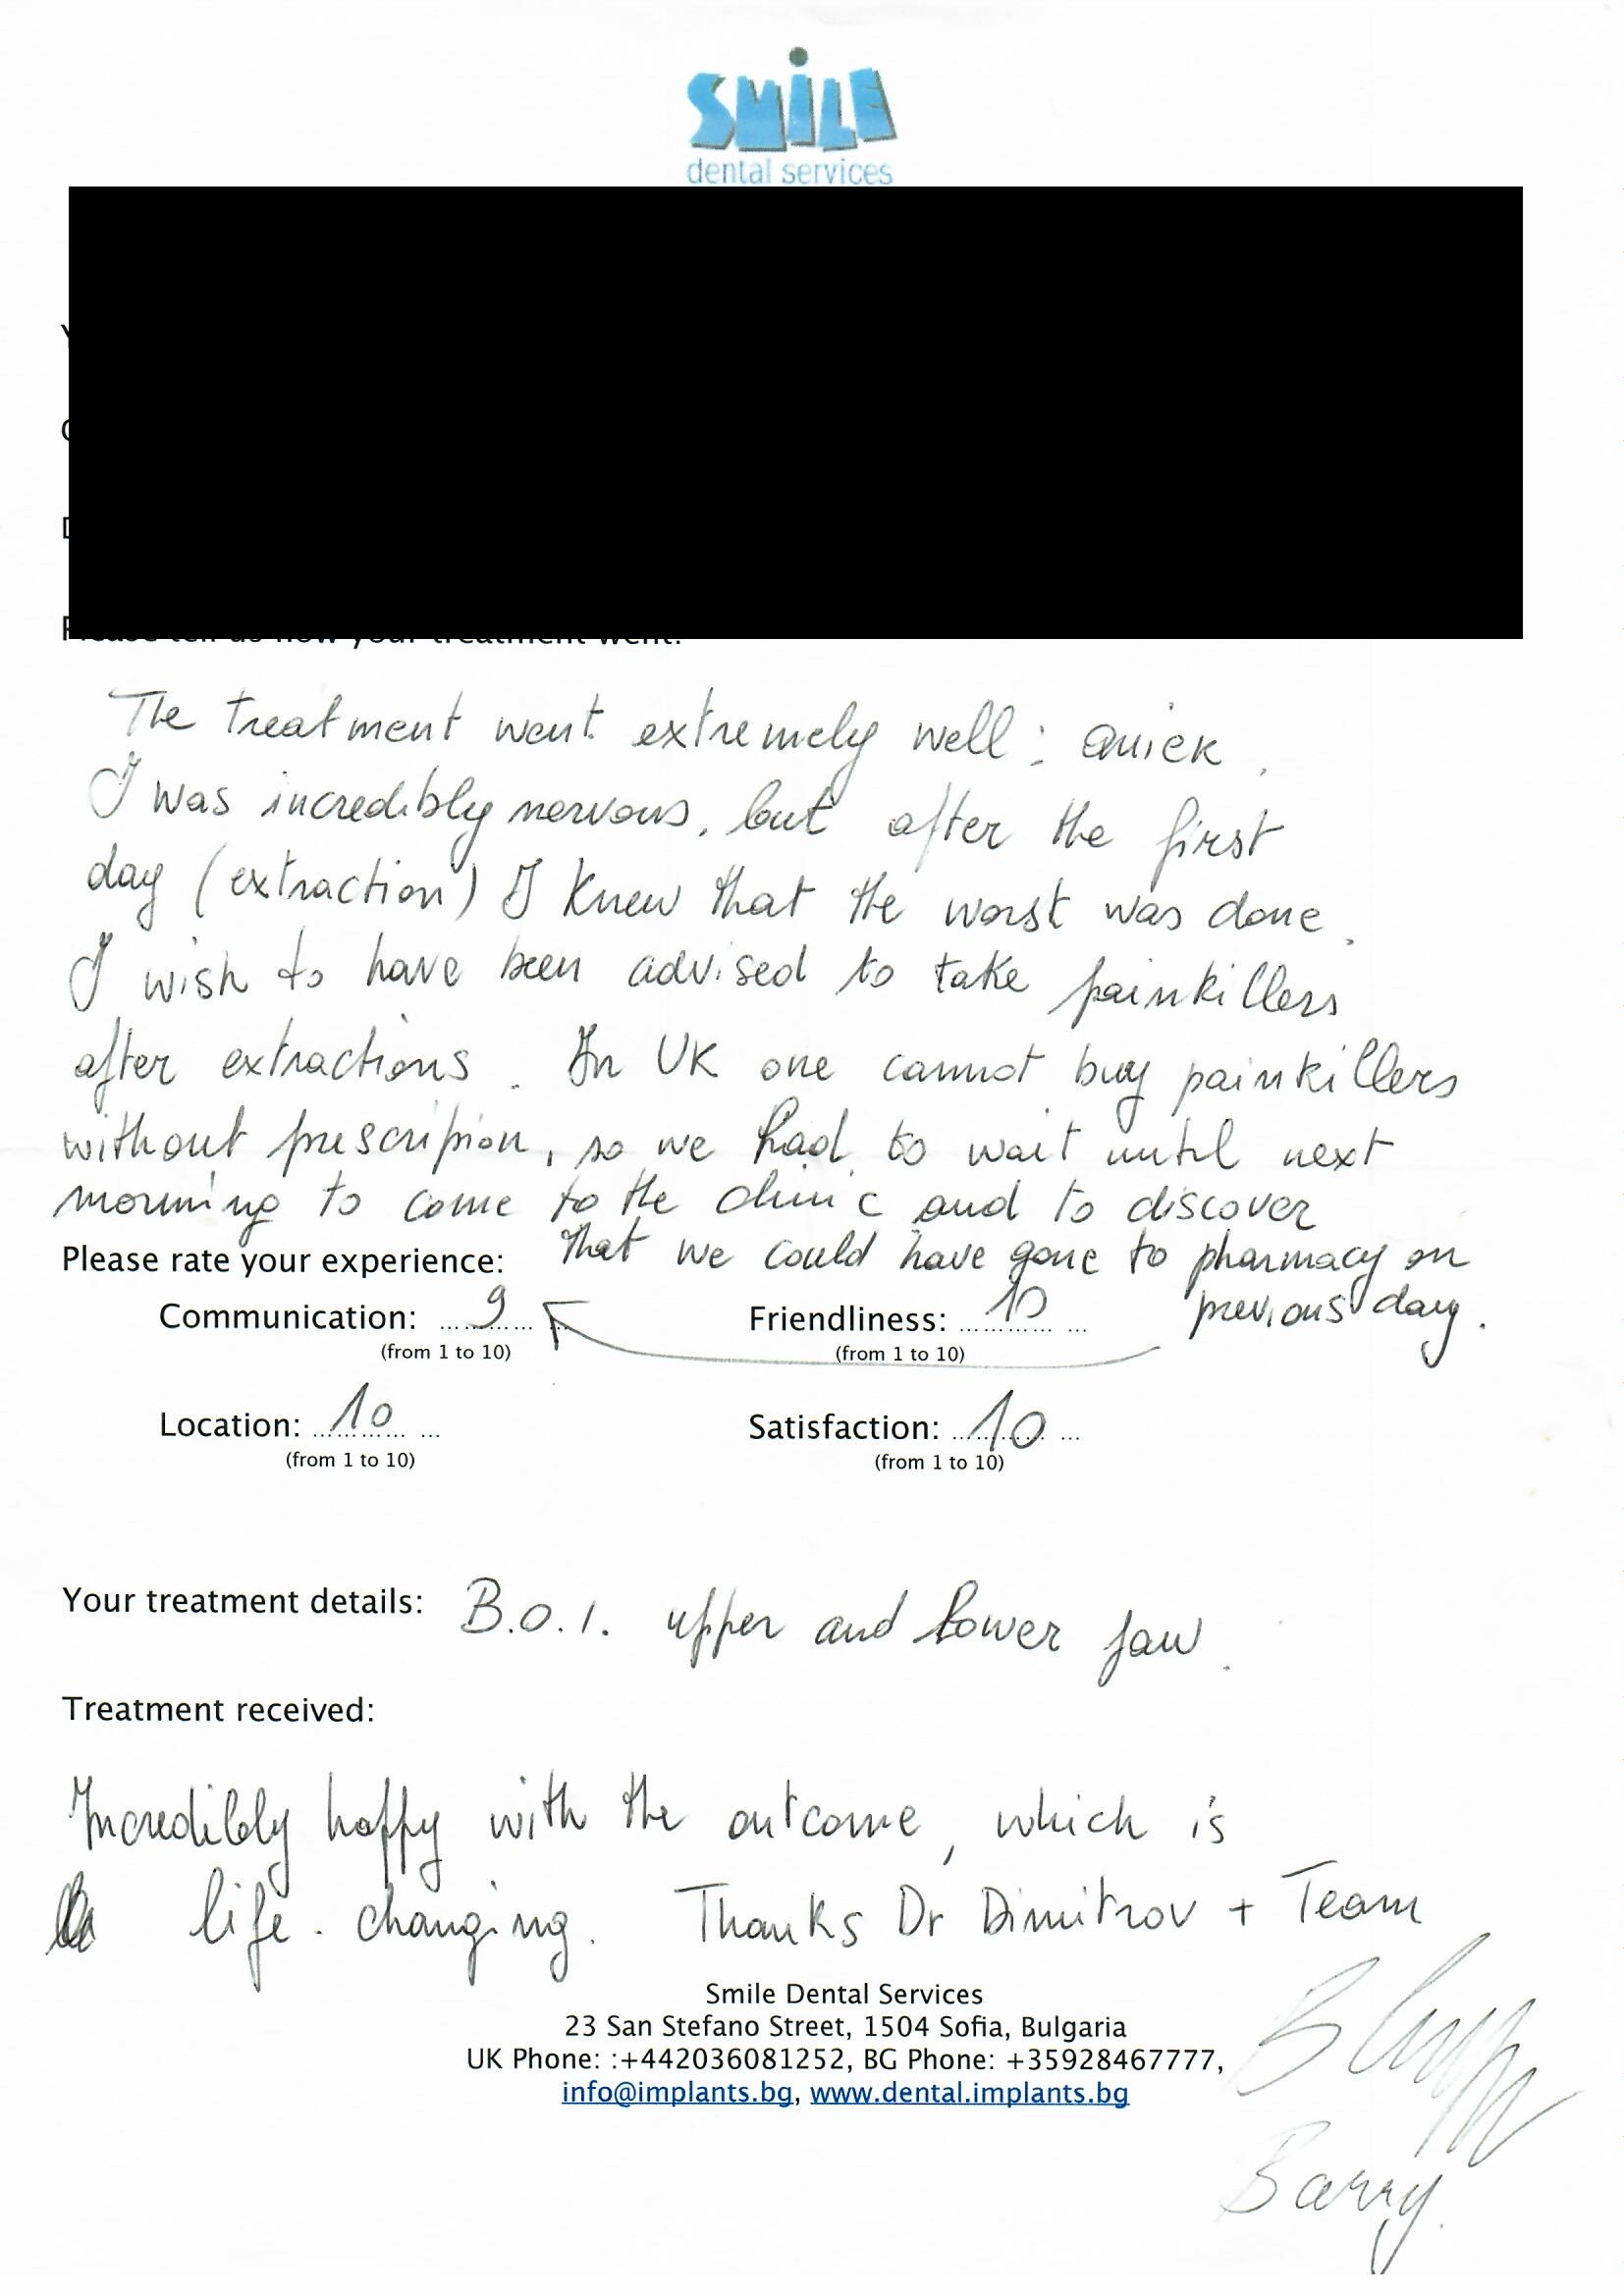 SMILE
dental services
Please tell us how your treatment went:
The treatment went extremely well: Quick.
I was incredibly nervous, but after the first
day (extraction) I knew that the worst was done.
I wish to have been advised to take painkillers
after extractions. In UK one cannot buy painkillers
without prescripion, so we had to wait until next
morning to come to the clinic and to discover
Please rate your experience: that we could have gone to pharmacy on
previous day.
Communication: 9 Friendliness: 10
(from 1 to 10) (from 1 to 10)
Location: 10 Satisfaction: 10
(from 1 to 10) (from 1 to 10)
Your treatment details: B.O.I. upper and lower jaw.
Treatment received:
Incredibly happy with the outcome, which is
life-changing. Thanks Dr Dimitrov + Team
Smile Dental Services
23 San Stefano Street, 1504 Sofia, Bulgaria
UK Phone: :+442036081252, BG Phone: +35928467777,
info@implants.bg, www.dental.implants.bg
Barry.